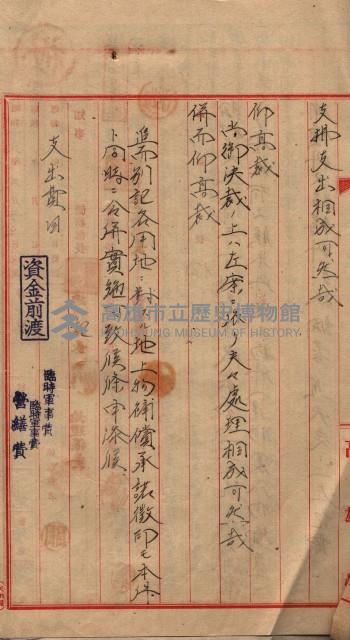 支拂支出相成可然哉
仰高裁
尚御決裁ノ上ハ左案ニ依リ夫々處理相成可然哉
併而仰高裁
追而別記各用地ニ對スル地上物補償承諾徴印モ本件
ト同時ニ合併實施致候條申添候
支出費目
資金前渡
臨時軍事費
臨時軍事費
營繕費
高雄市立歷史博物館
KAOHSIUNG MUSEUM OF HISTORY
高雄